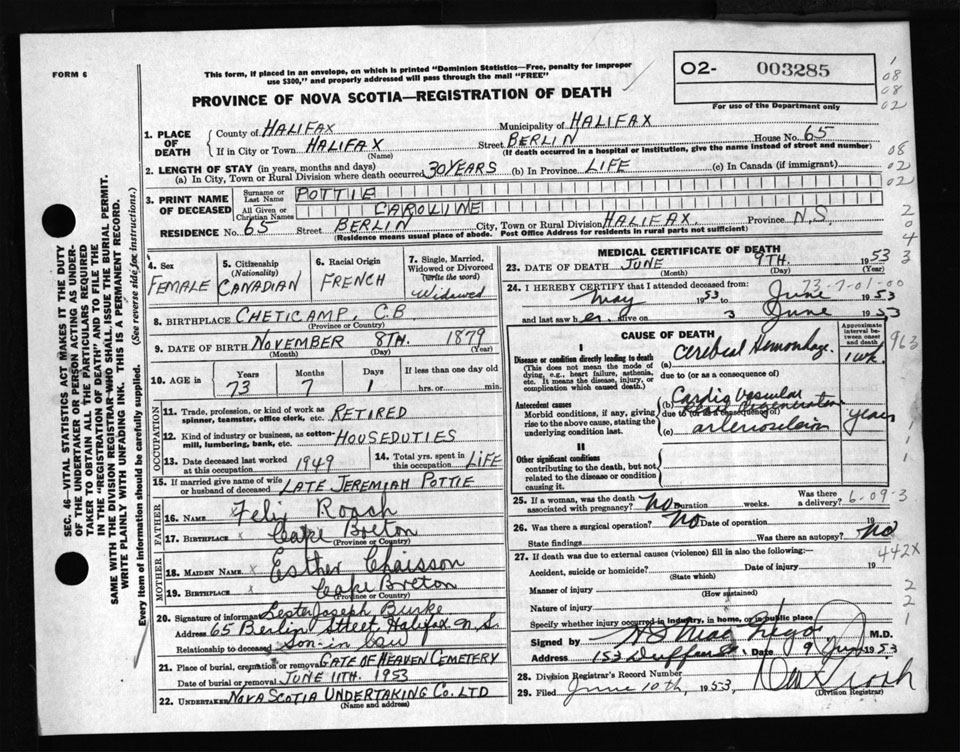 FORM 6
This form, if placed in an envelope, on which is printed "Dominion Statistics—Free, penalty for improper
use $300," and properly addressed will pass through the mail "FREE"
O2- 003285
For use of the Department only
PROVINCE OF NOVA SCOTIA—REGISTRATION OF DEATH
1. PLACE OF DEATH
County of HALIFAX Municipality of HALIFAX
If in City or Town HALIFAX Street BERLIN House No. 65
(Name) (If death occurred in a hospital or institution, give the name instead of street and number)
2. LENGTH OF STAY (in years, months and days)
(a) In City, Town or Rural Division where death occurred 30 YEARS (b) In Province LIFE (c) In Canada (if immigrant)
3. PRINT NAME OF DECEASED
Surname or Last Name POTTIE
All Given or Christian Names CAROLINE
RESIDENCE No. 65 Street BERLIN City, Town or Rural Division HALIFAX Province N.S
(Residence means usual place of abode. Post Office Address for residents in rural parts not sufficient)
4. Sex FEMALE
5. Citizenship (Nationality) CANADIAN
6. Racial Origin FRENCH
7. Single, Married, Widowed or Divorced (write the word) Widowed
8. BIRTHPLACE CHETICAMP, C.B.
(Province or Country)
9. DATE OF BIRTH NOVEMBER 8TH. 1879
(Month) (Day) (Year)
10. AGE in Years 73 Months 7 Days 1 If less than one day old hrs. or min.
OCCUPATION
11. Trade, profession, or kind of work as spinner, teamster, office clerk, etc. RETIRED
12. Kind of industry or business, as cotton-mill, lumbering, bank, etc. HOUSEDUTIES
13. Date deceased last worked at this occupation 1949
14. Total yrs. spent in this occupation LIFE
15. If married give name of wife or husband of deceased LATE JEREMIAH POTTIE
FATHER
16. NAME Felix Roach
17. BIRTHPLACE Cape Breton
(Province or Country)
MOTHER
18. MAIDEN NAME Esther Chaisson
19. BIRTHPLACE Cape Breton
(Province or Country)
20. Signature of informant Lester Joseph Burke
Address 65 Berlin Street Halifax N.S.
Relationship to deceased Son in law
21. Place of burial, cremation or removal GATE OF HEAVEN CEMETERY
Date of burial or removal JUNE 11TH. 1953
22. UNDERTAKER NOVA SCOTIA UNDERTAKING CO. LTD
(Name and address)
MEDICAL CERTIFICATE OF DEATH
23. DATE OF DEATH JUNE 9TH. 1953
(Month) (Day) (Year)
73-7-01-00
24. I HEREBY CERTIFY that I attended deceased from:
May 1953 to June 1953
and last saw her alive on 3 June 1953
CAUSE OF DEATH
Approximate interval between onset and death
I
Disease or condition directly leading to death
(This does not mean the mode of dying, e.g., heart failure, asthenia, etc. It means the disease, injury, or complication which caused death.)
(a) Cerebral Hemorrhage 1 wk.
due to (or as a consequence of)
Antecedent causes
Morbid conditions, if any, giving rise to the above cause, stating the underlying condition last.
(b) Cardio Vascular
due to (or as a consequence of)
(c) arteriosclerosis years
II
Other significant conditions
contributing to the death, but not related to the disease or condition causing it.
25. If a woman, was the death associated with pregnancy? No Duration weeks. Was there a delivery?
6-09-3
26. Was there a surgical operation? No Date of operation 19
State findings Was there an autopsy? No
27. If death was due to external causes (violence) fill in also the following:
442X
Accident, suicide or homicide? Date of injury 19
(State which)
Manner of injury
(How sustained)
Nature of injury
Specify whether injury occurred in industry, in home, or in public place
Signed by M.D.
Address 153 Date 9 June 1953
28. Division Registrar's Record Number
29. Filed June 10th, 1953,
(Division Registrar)
SEC. 46—VITAL STATISTICS ACT MAKES IT THE DUTY
OF THE UNDERTAKER OR PERSON ACTING AS UNDER-
TAKER TO OBTAIN ALL THE PARTICULARS REQUIRED
IN THE "REGISTRATION OF DEATH" AND TO FILE THE
SAME WITH THE DIVISION REGISTRAR WHO SHALL ISSUE THE BURIAL PERMIT.
WRITE PLAINLY WITH UNFADING INK. THIS IS A PERMANENT RECORD.
Every item of information should be carefully supplied. (See reverse side for instructions.)
1
08
08
02
08
02
02
2
0
4
3
3
963
1
1
1
2
2
1